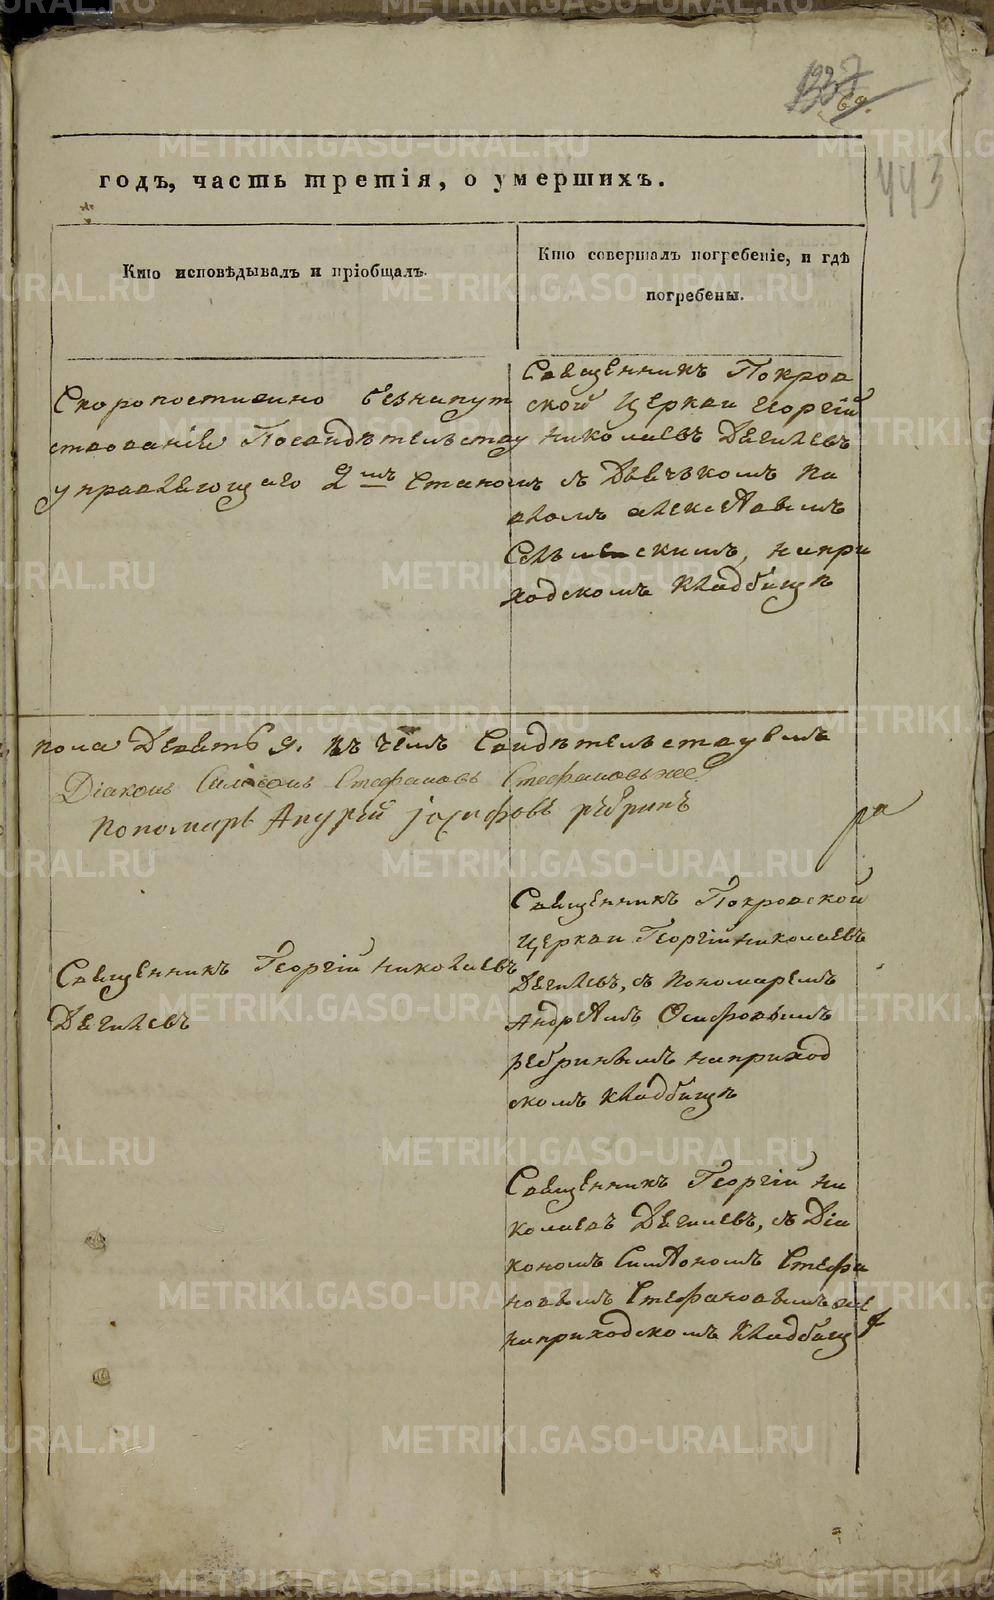 443
годъ, часть третія, о умершихъ.
Кто исповѣдывалъ и пріобщалъ.
Кто совершалъ погребеніе, и гдѣ
погребены.
Скоропостижно безнапут
ствованія Посвидѣтельству
управляющаго 2мъ Станомъ
Священникъ Покров
ской Церкви Георгій
Николаевъ Дягилевъ
съ Дьячкомъ Па
вломъ Алексѣевымъ
скимъ, напри
ходскомъ Кладбищѣ
пола Девять 9. въ чемъ Свидѣтельствуемъ
Діаконъ Симеонъ Стефановъ
Пономарь Андрей Іосифовъ Ребринъ
Священникъ Георгій Николаевъ
Дягилевъ
Священникъ Покровской
Церкви Георгій Николаевъ
Дягилевъ, съ Пономаремъ
Андреямъ Осифовымъ
Ребринымъ наприход
скомъ Кладбищѣ
Священникъ Георгій Ни
колаевъ Дягилевъ, съ Діа
кономъ Симѣономъ Стефа
новымъ Стефановымъ же
наприходскомъ Кладбищѣ
METRIKI.GASO-URAL.RU